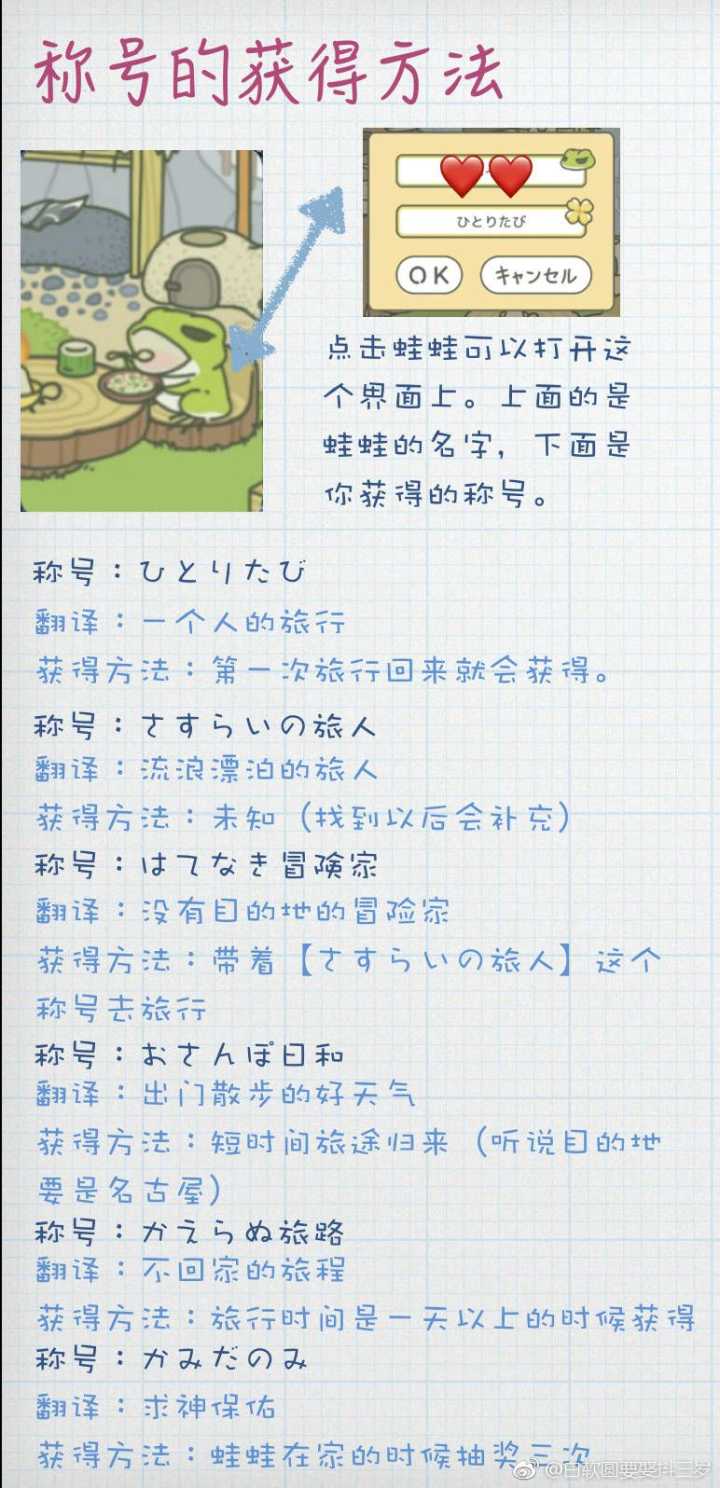 称号的获得方法
ひとりたび
OK
キャンセル
点击蛙蛙可以打开这
个界面上。上面的是
蛙蛙的名字，下面是
你获得的称号。
称号：ひとりたび
翻译：一个人的旅行
获得方法：第一次旅行回来就会获得。
称号：さすらいの旅人
翻译：流浪漂泊的旅人
获得方法：未知（找到以后会补充）
称号：はてなき冒険家
翻译：没有目的地的冒险家
获得方法：带着【さすらいの旅人】这个
称号去旅行
称号：おさんぽ日和
翻译：出门散步的好天气
获得方法：短时间旅途归来（听说目的地
要是名古屋）
称号：かえらぬ旅路
翻译：不回家的旅程
获得方法：旅行时间是一天以上的时候获得
称号：かみだのみ
翻译：求神保佑
获得方法：蛙蛙在家的时候抽奖三次
@白软圆要娶抖三岁